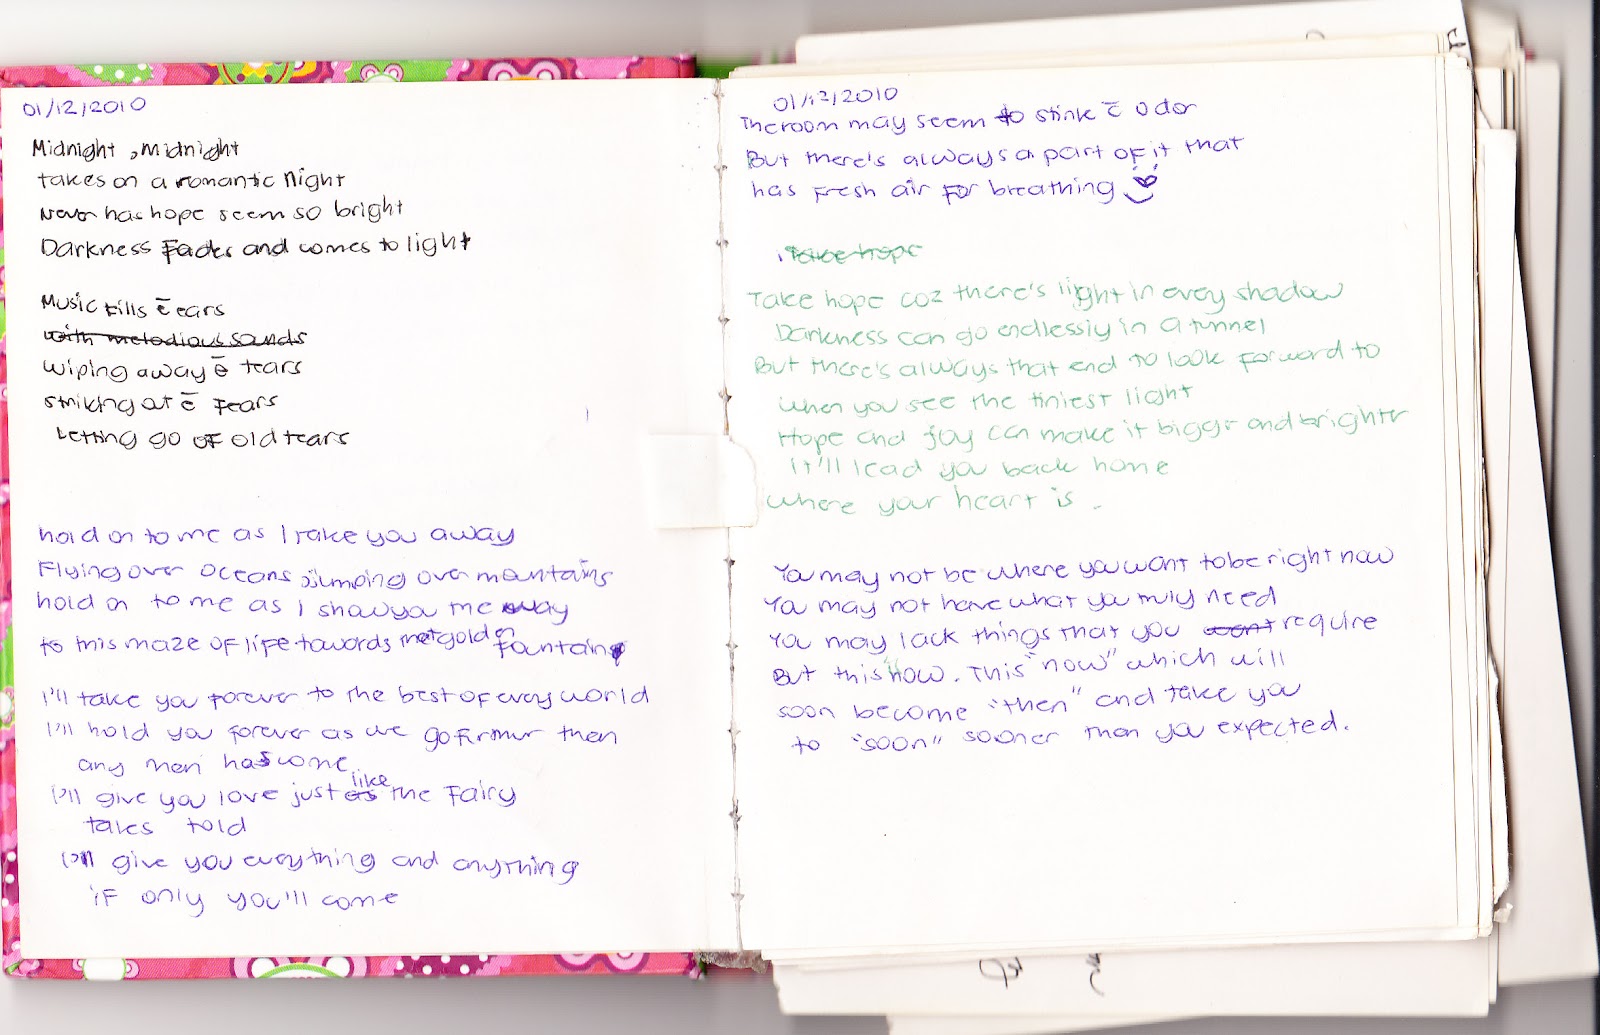 01/12/2010
Midnight, midnight
takes on a romantic night
Never has hope seem so bright
Darkness Fades and comes to light
Music fills ē ears
with melodious sounds
wiping away ē tears
striking at ē Fears
Letting go of old tears
hold on to me as I take you away
Flying over oceans jumping over mountains
hold on to me as I show you the way
to this maze of life towards that golden fountain
I'll take you forever to the best of every world
I'll hold you forever as we go further then
any men has come
I'll give you love just as like the Fairy
tales told
I'll give you everything and anything
if only you'll come
01/12/2010
The room may seem to stink ē odor
But there's always a part of it that
has fresh air for breathing
Take hope
Take hope coz there's light in every shadow
Darkness can go endlessly in a tunnel
But there's always that end to look forward to
when you see the tiniest light
Hope and joy can make it bigger and brighter
It'll lead you back home
where your heart is.
You may not be where you want to be right now
You may not have what you truly need
You may lack things that you want require
But this is now. This "now" which will
soon become "then" and take you
to "soon" sooner than you expected.